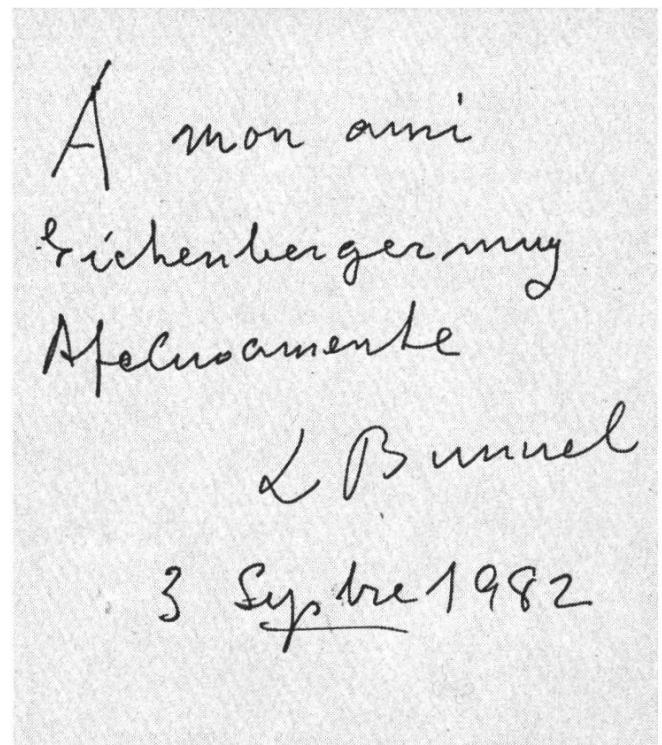 A mon ami
Eichenberger muy
Afectuosamente
L Bunuel
3 Sepbre 1982